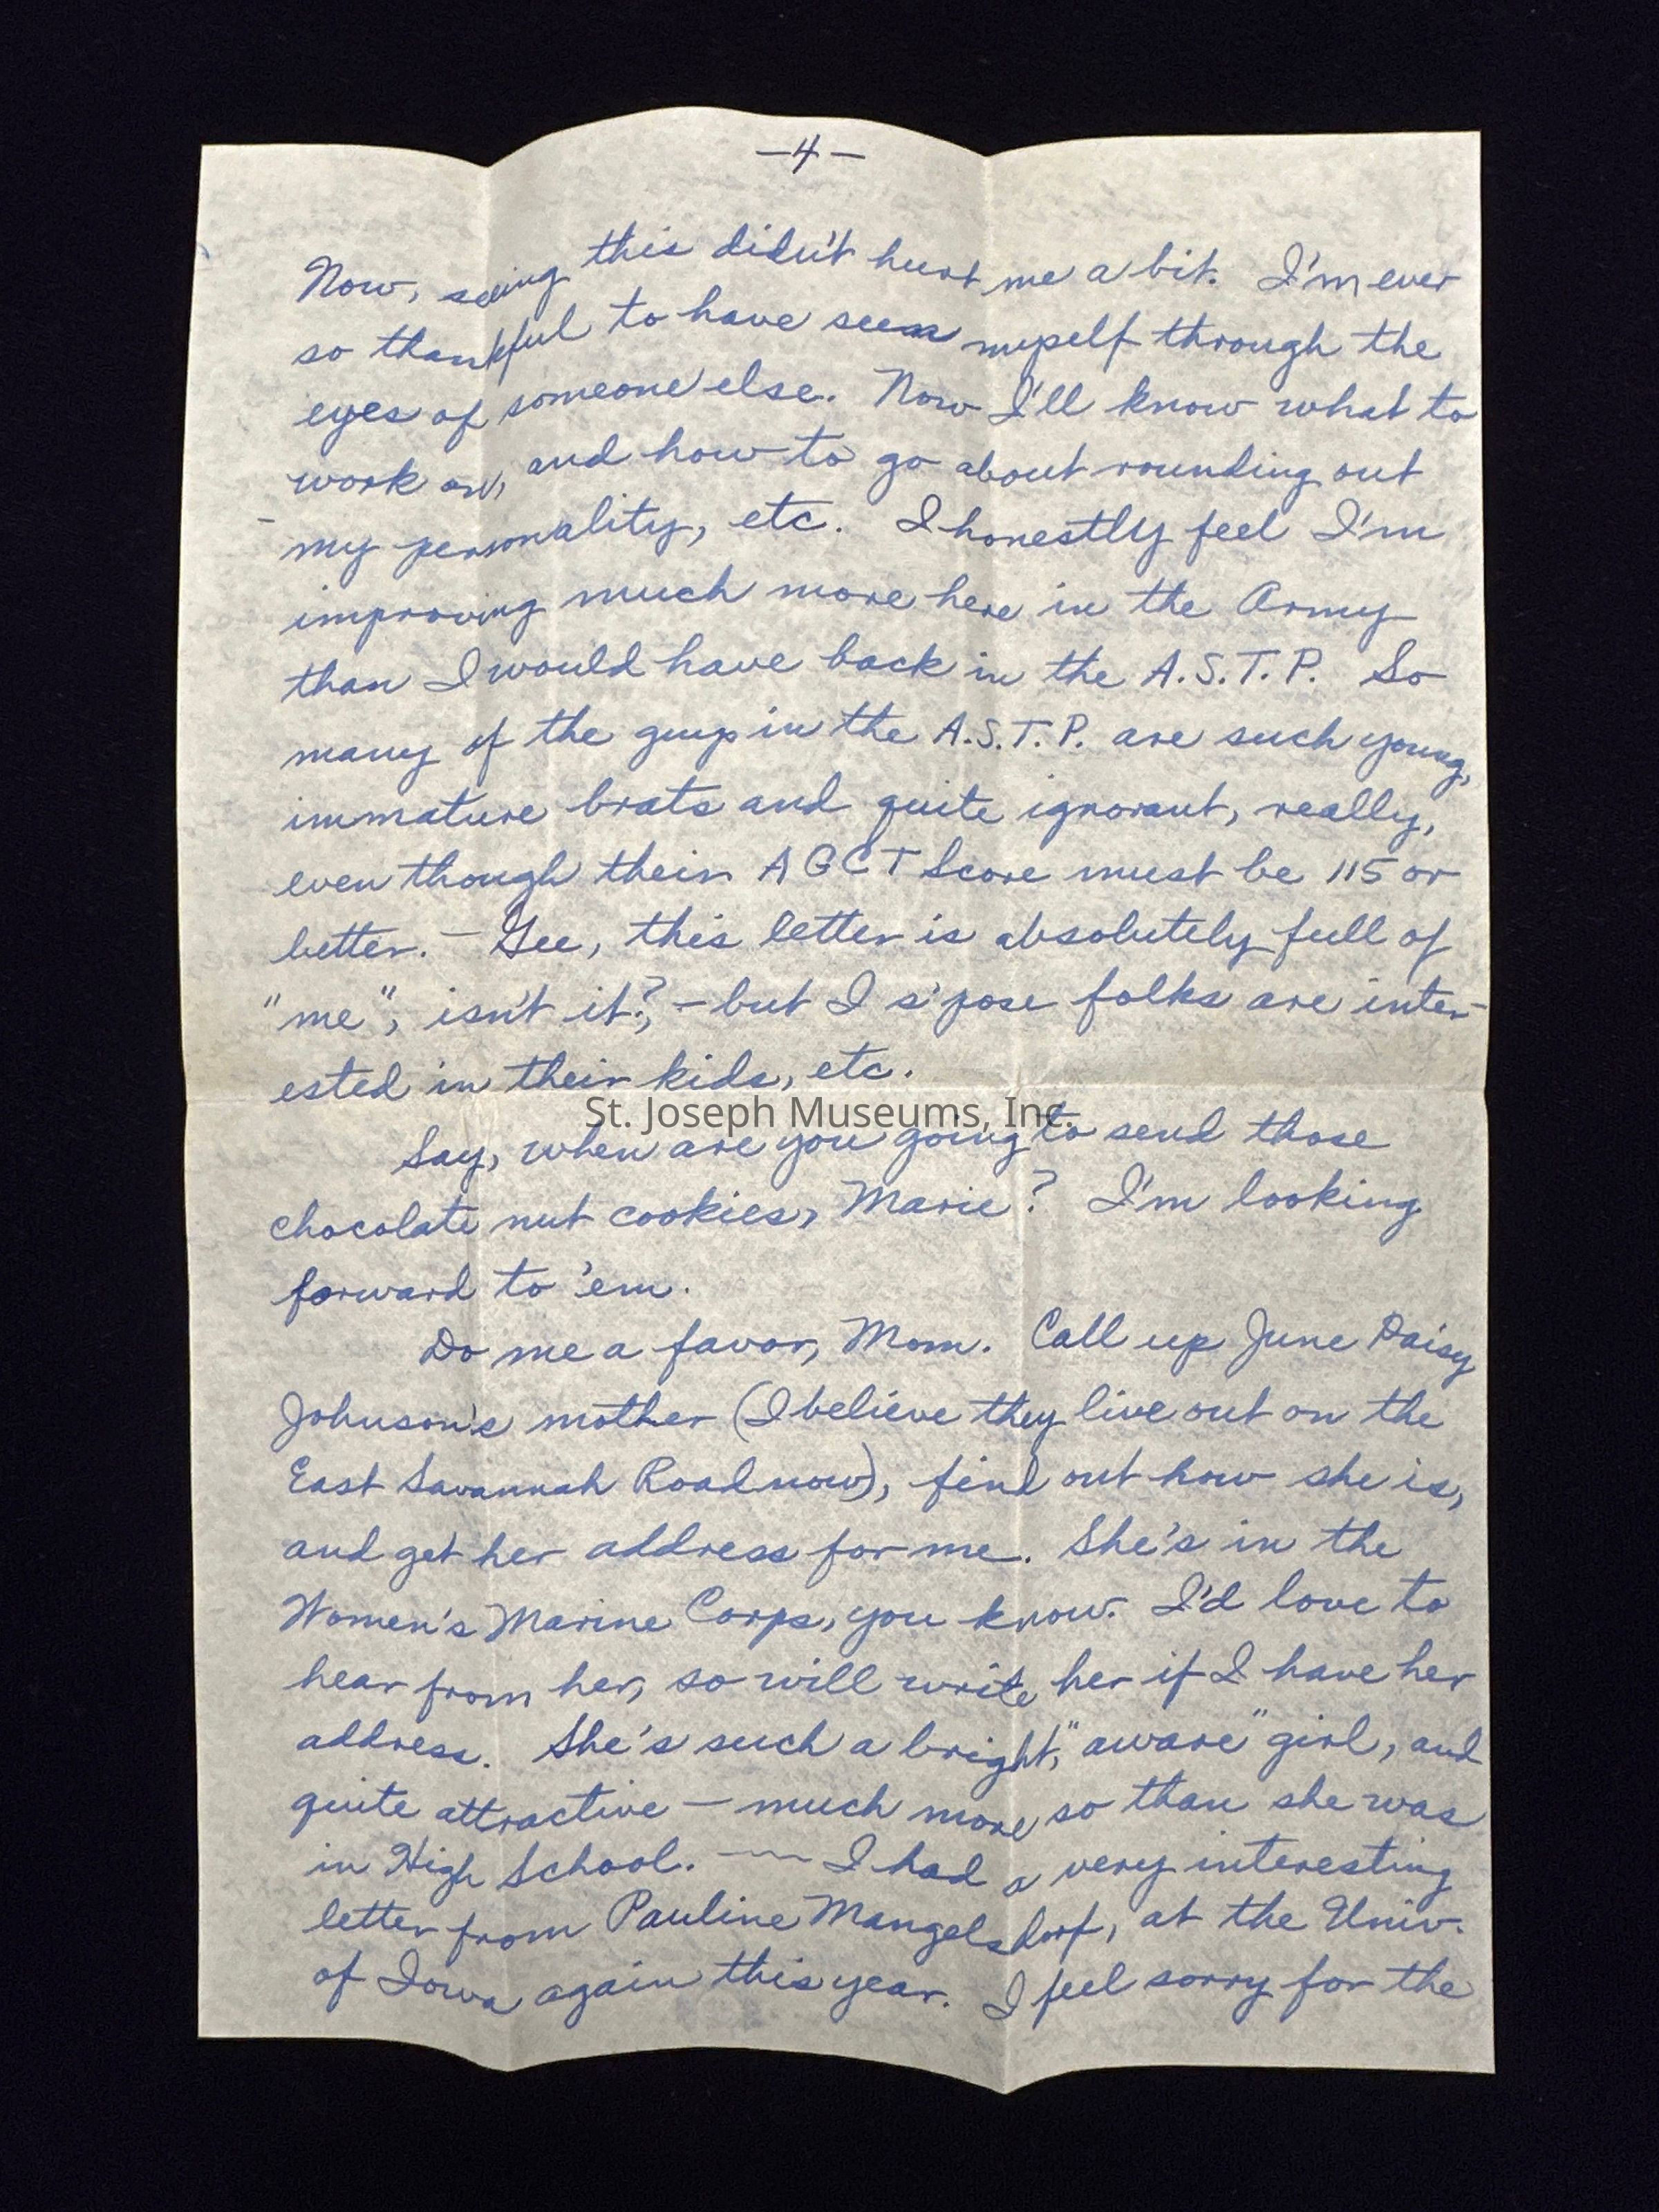 —4—
Now, seeing this didn't hurt me a bit. I'm ever
so thankful to have seen myself through the
eyes of someone else. Now I'll know what to
work on, and how to go about rounding out
my personality, etc. I honestly feel I'm
improving much more here in the Army
than I would have back in the A.S.T.P. So
many of the guys in the A.S.T.P. are such young,
immature brats and quite ignorant, really,
even though their AGCT Score must be 115 or
better. — Gee, this letter is absolutely full of
"me", isn't it?, — but I s'pose folks are inter-
ested in their kids, etc.
St. Joseph Museums, Inc.
Say, when are you going to send those
chocolate nut cookies, Marie? I'm looking
forward to 'em.
Do me a favor, Mom. Call up June Daisy
Johnson's mother (I believe they live out on the
East Savannah Road now), find out how she is,
and get her address for me. She's in the
Women's Marine Corps, you know. I'd love to
hear from her, so will write her if I have her
address. She's such a bright, "aware" girl, and
quite attractive — much more so than she was
in High School. — I had a very interesting
letter from Pauline Mangelsdorf, at the Univ.
of Iowa again this year. I feel sorry for the